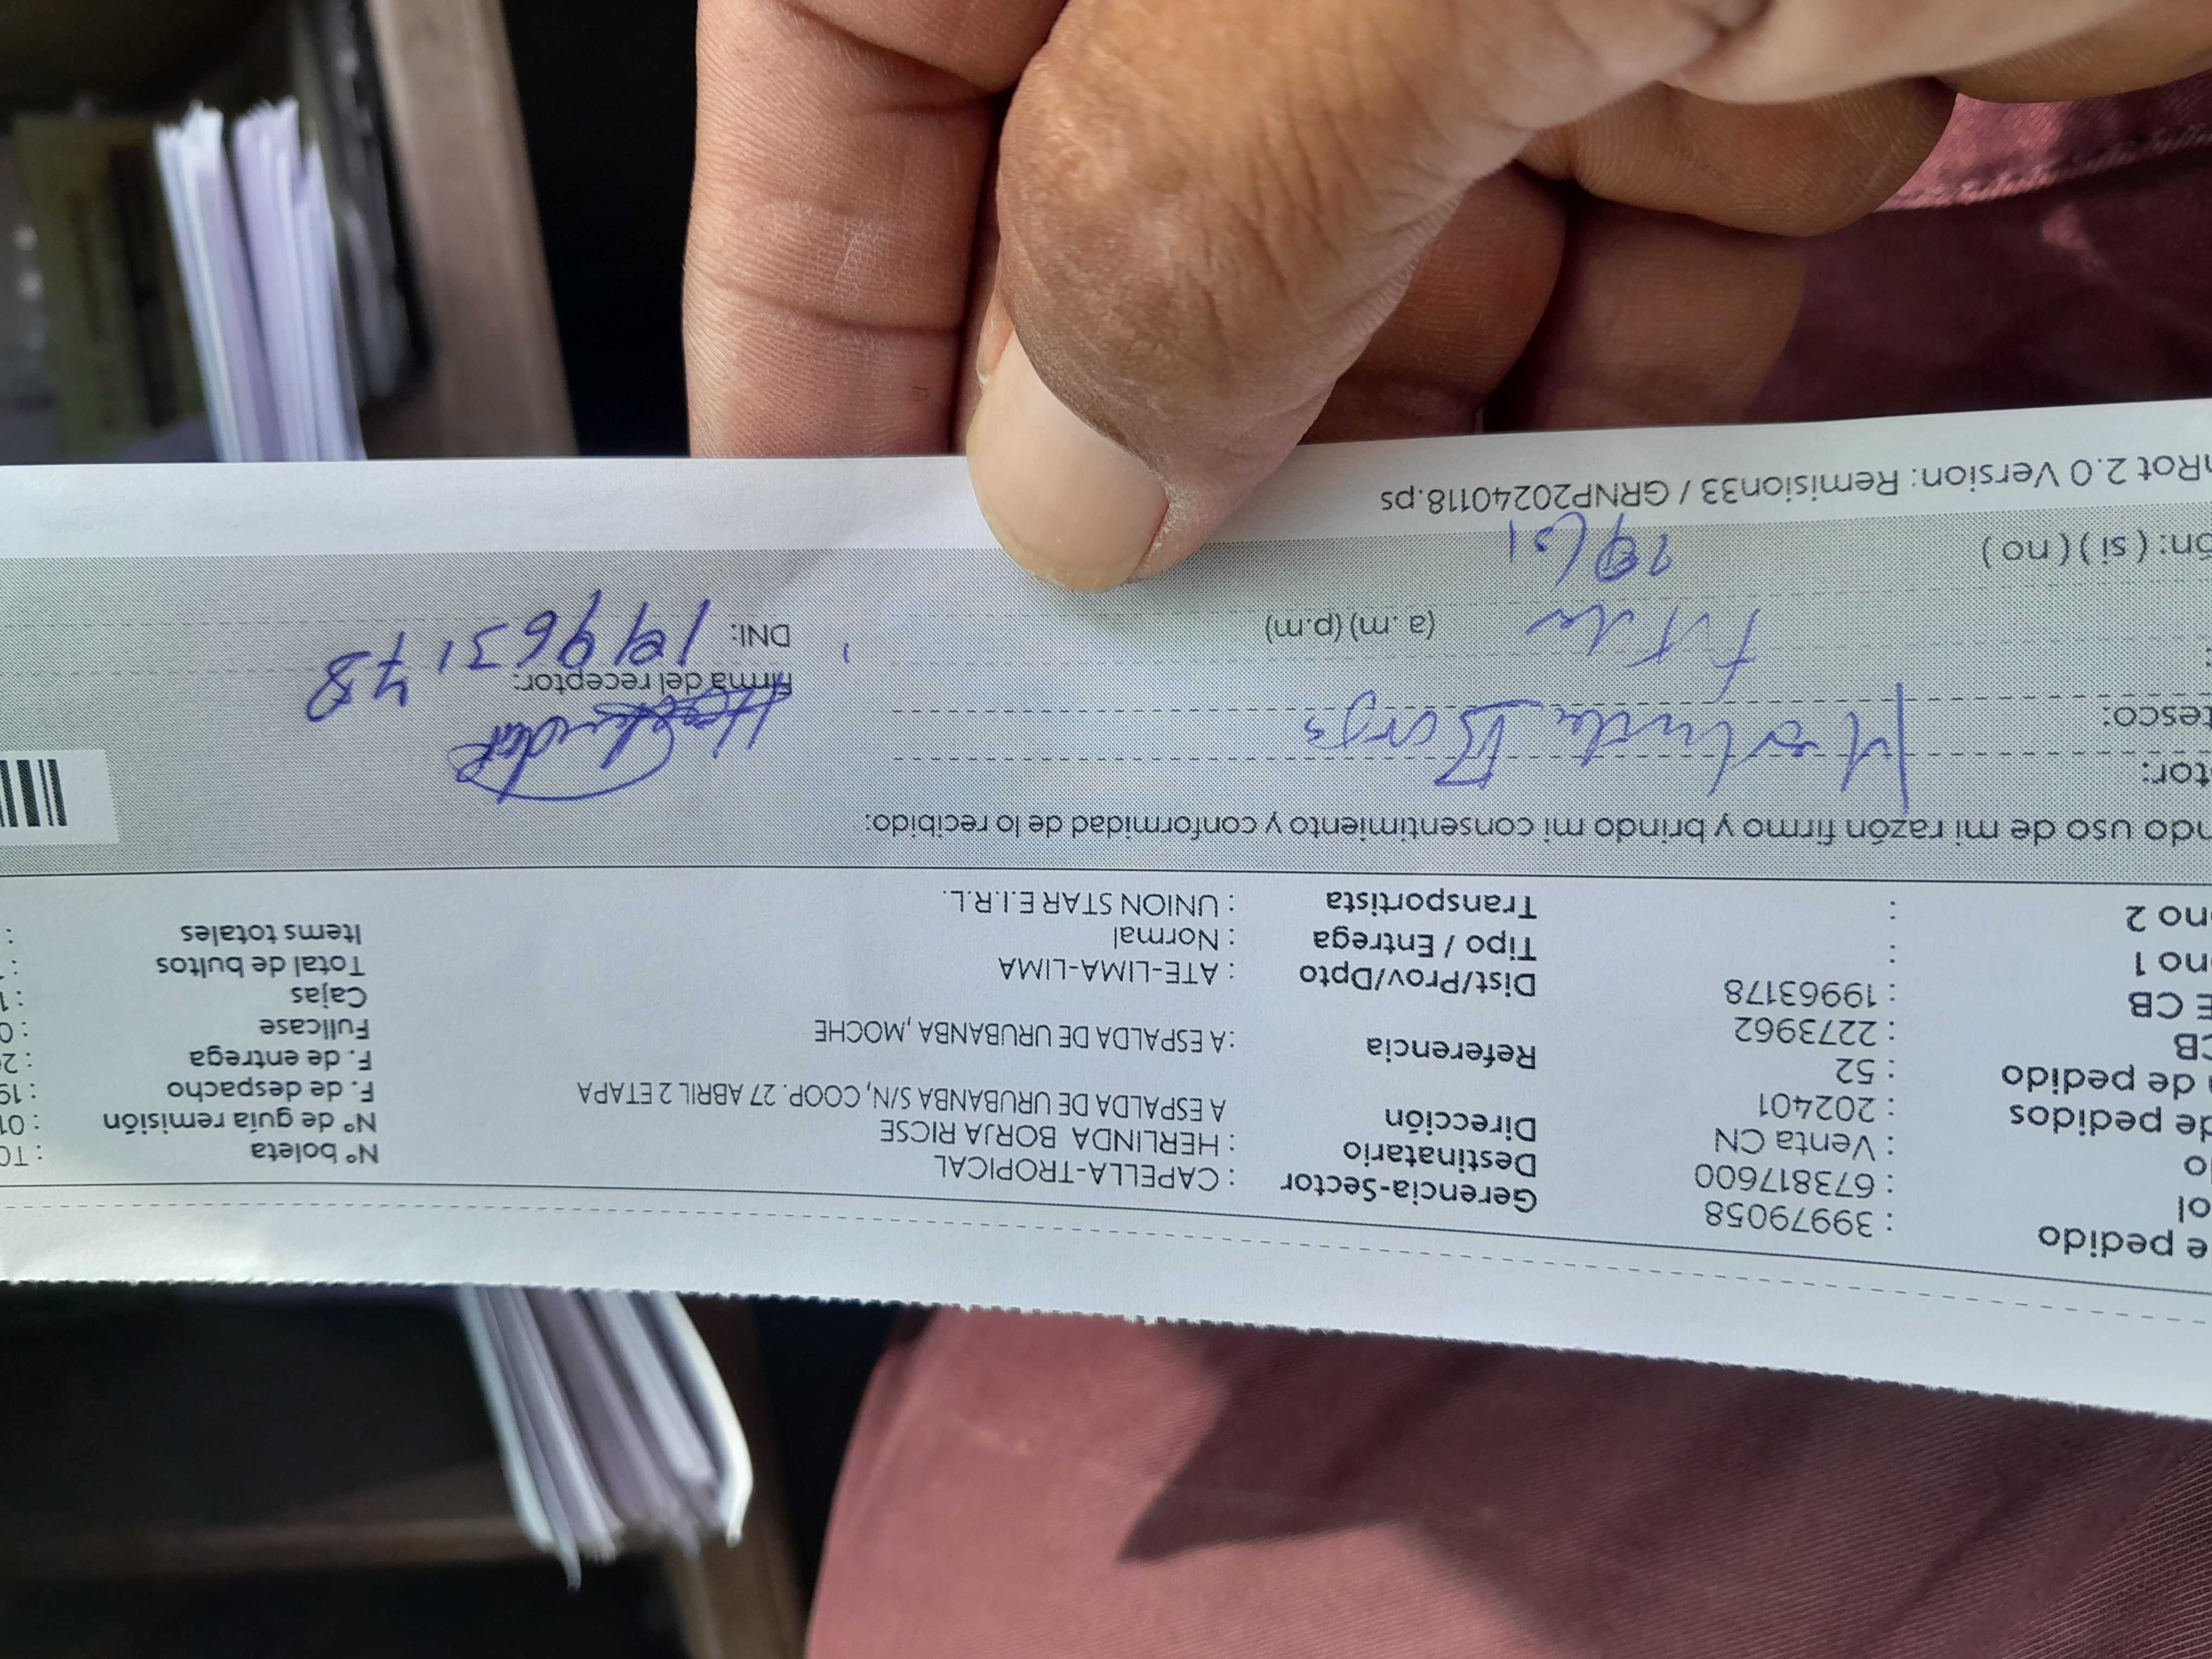 e pedido : 39979058 Gerencia-Sector : CAPELLA-TROPICAL Nº boleta : TO
ol : 673817600 Destinatario : HERLINDA BORJA RICSE Nº de guía remisión : 01
o : Venta CN Dirección A ESPALDA DE URUBANBA S/N, COOP. 27 ABRIL 2 ETAPA F. de despacho : 19
de pedidos : 202401 F. de entrega : 2
de pedido : 52 Referencia : A ESPALDA DE URUBANBA, MOCHE Fullcase : 0
CB : 2273962 Cajas : 1
E CB : 19963178 Dist/Prov/Dpto : ATE-LIMA-LIMA Total de bultos :
ono 1 : Tipo / Entrega : Normal Items totales :
ono 2 : Transportista : UNION STAR E.I.R.L.
ndo uso de mi razón firmo y brindo mi consentimiento y conformidad de lo recibido:
tor: Herlinda Borja
tesco: Firma del receptor:
: Titular (a. m) (p.m) DNI: 19963178
ón: ( si ) ( no )
nRot 2.0 Version: Remision33 / GRNP20240118.ps